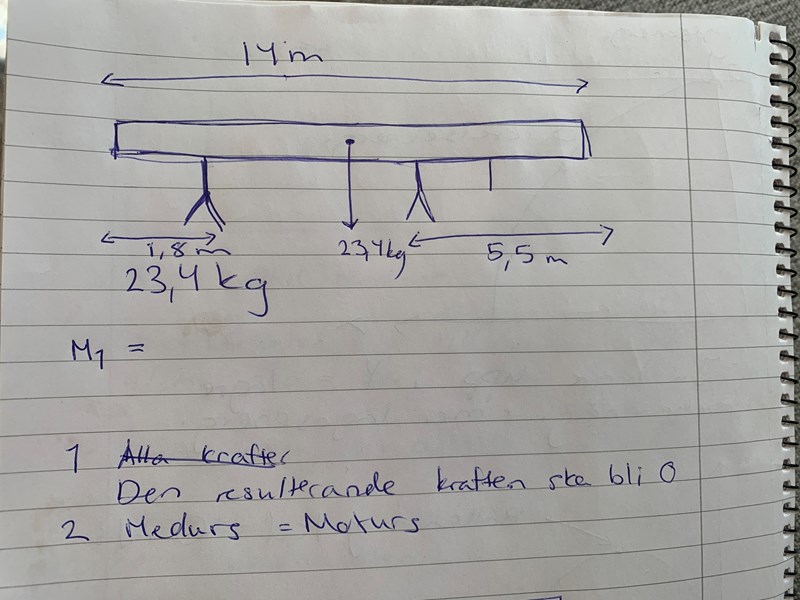 14 m
1,8 m
23,4kg
5,5 m
23,4 kg
M1 =
1 Alla krafter
Den resulterande kraften ska bli 0
2 Medurs = Moturs